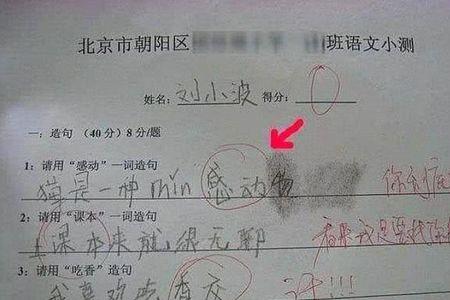 北京市朝阳区 班语文小测
姓名：刘小波 得分：0
一：造句（40分）8分/题
1：请用“感动”一词造句
猫是一种min感动物
你有病
2：请用“课本”一词造句
上课本来就很无聊
看来我是要找你
3：请用“吃香”一词造句
我喜欢吃香交
汗!!!